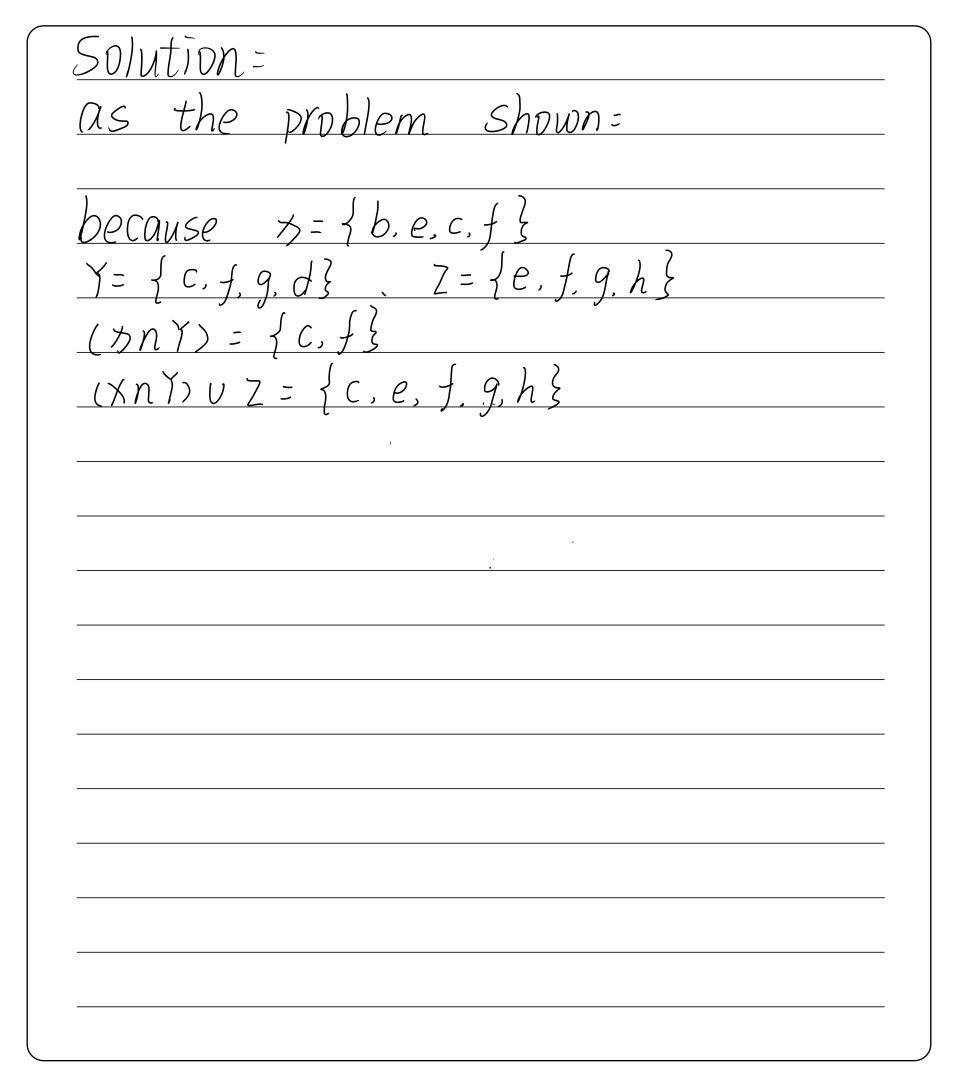 Solution:
as the problem shown:
because x = { b, e, c, f }
Y = { c, f, g, d } 、 Z = { e, f, g, h }
(x ∩ Y) = { c, f }
(X ∩ Y) ∪ Z = { c, e, f, g, h }